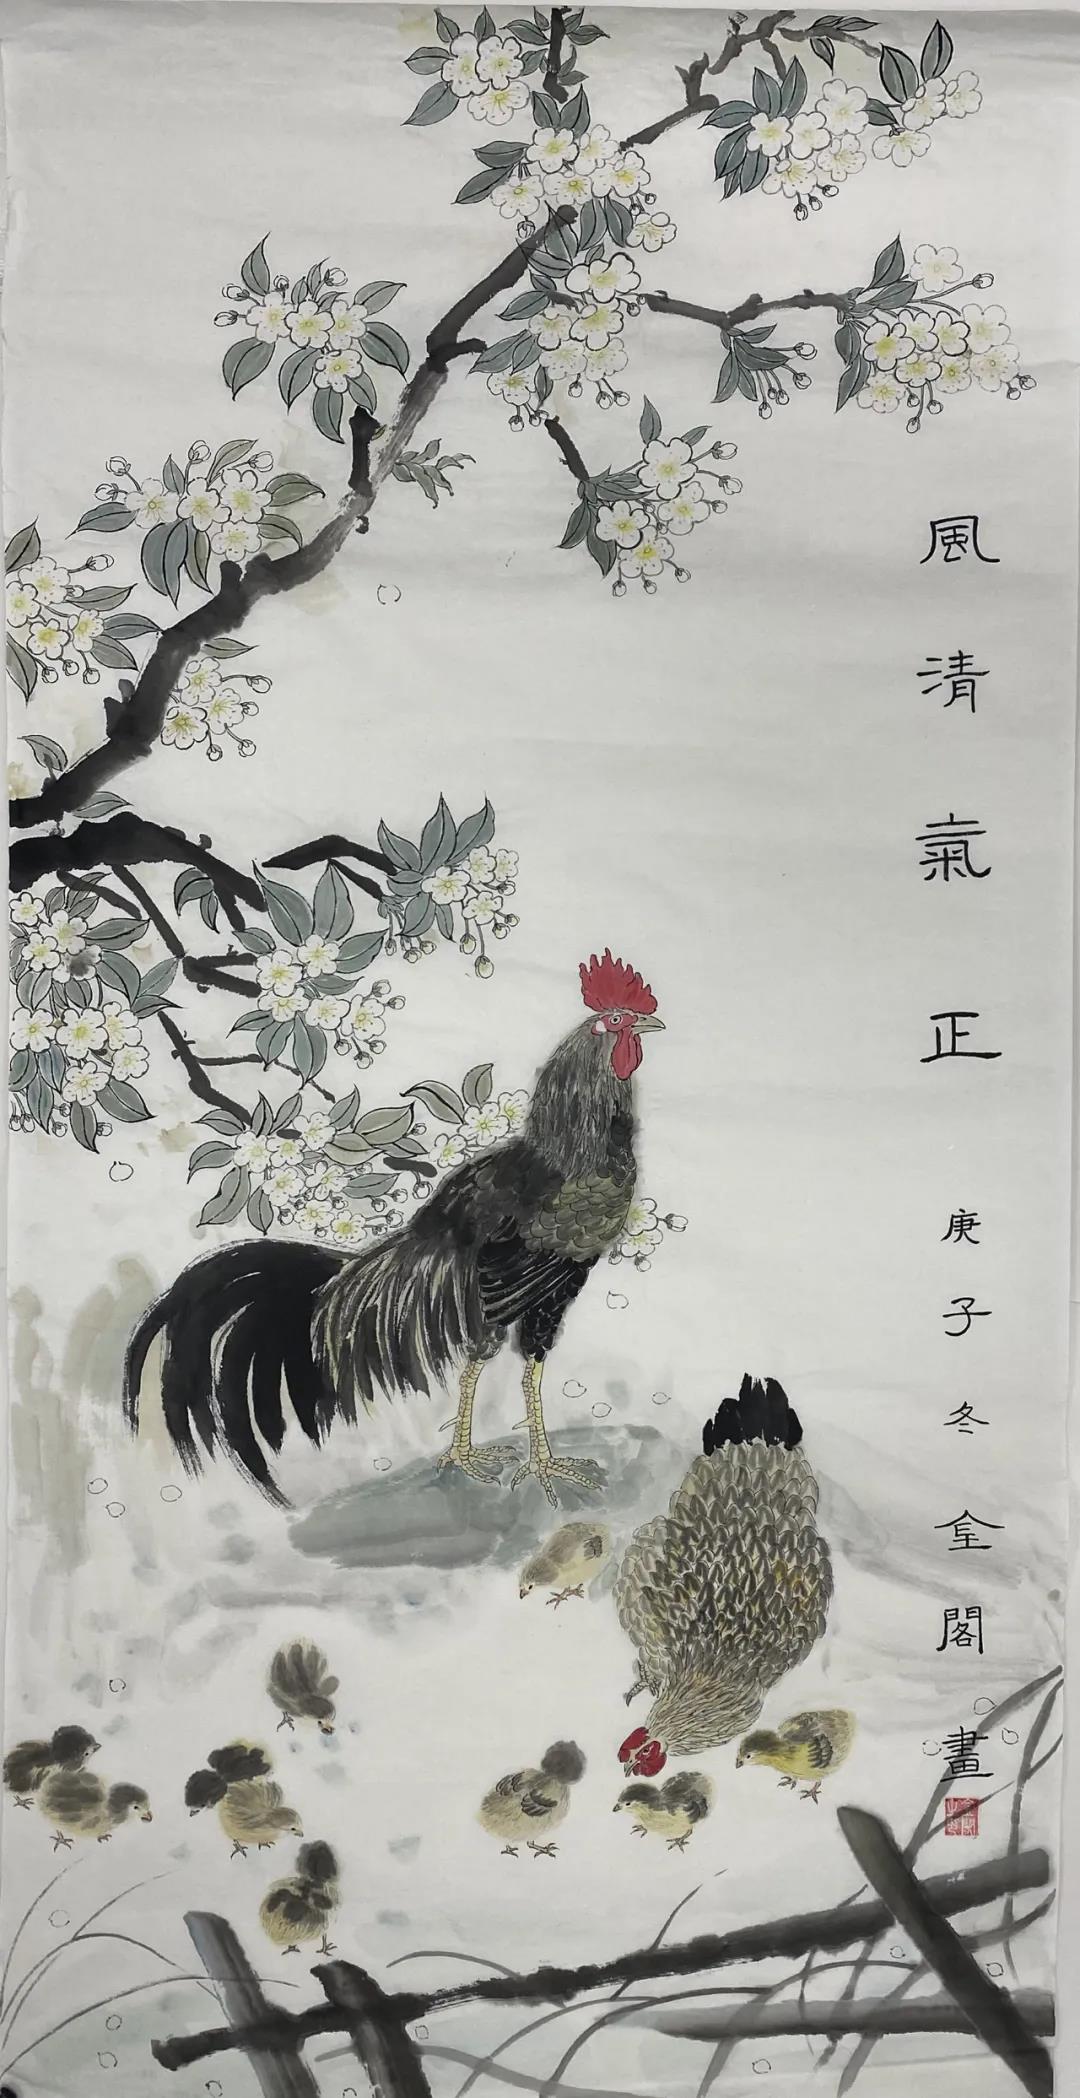 風清氣正
庚子冬金閣畫